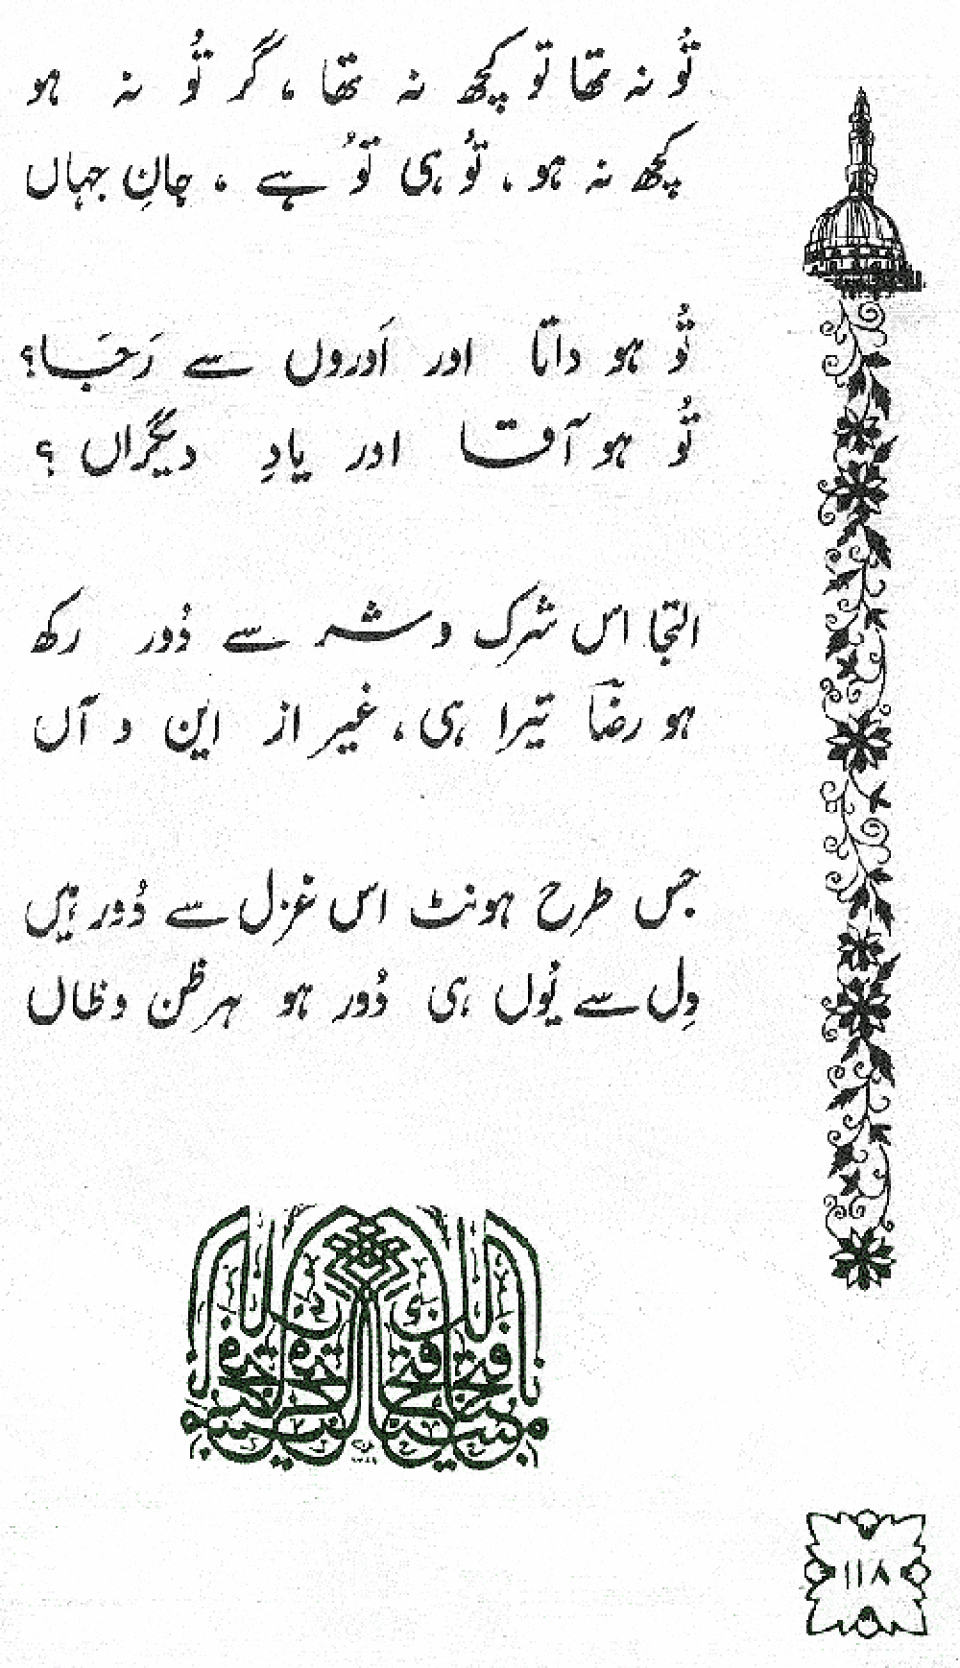 تُو نہ تھا تو کچھ نہ تھا، گر تُو نہ ہو
کچھ نہ ہو، تُو ہی تُو ہے، جانِ جہاں
تُو ہو داتا اور اَوروں سے رَجَا؟
تُو ہو آقا اور یادِ دیگراں؟
التجا اس شرک و شر سے دُور رکھ
ہو رضؔا تیرا ہی، غیر از این و آں
جس طرح ہونٹ اس غزل سے دُور ہیں
دِل سے یُوں ہی دُور ہو ہر ظن و ظاں
۱۱۸